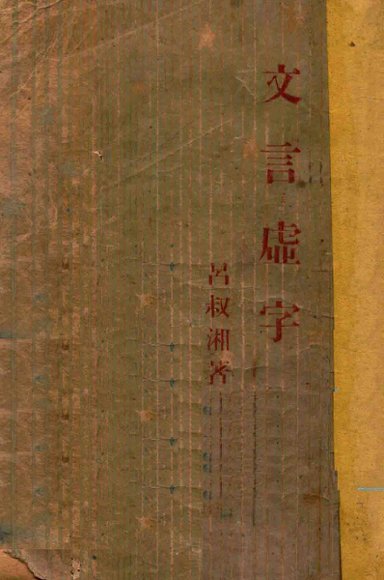 文言虛字
呂叔湘著